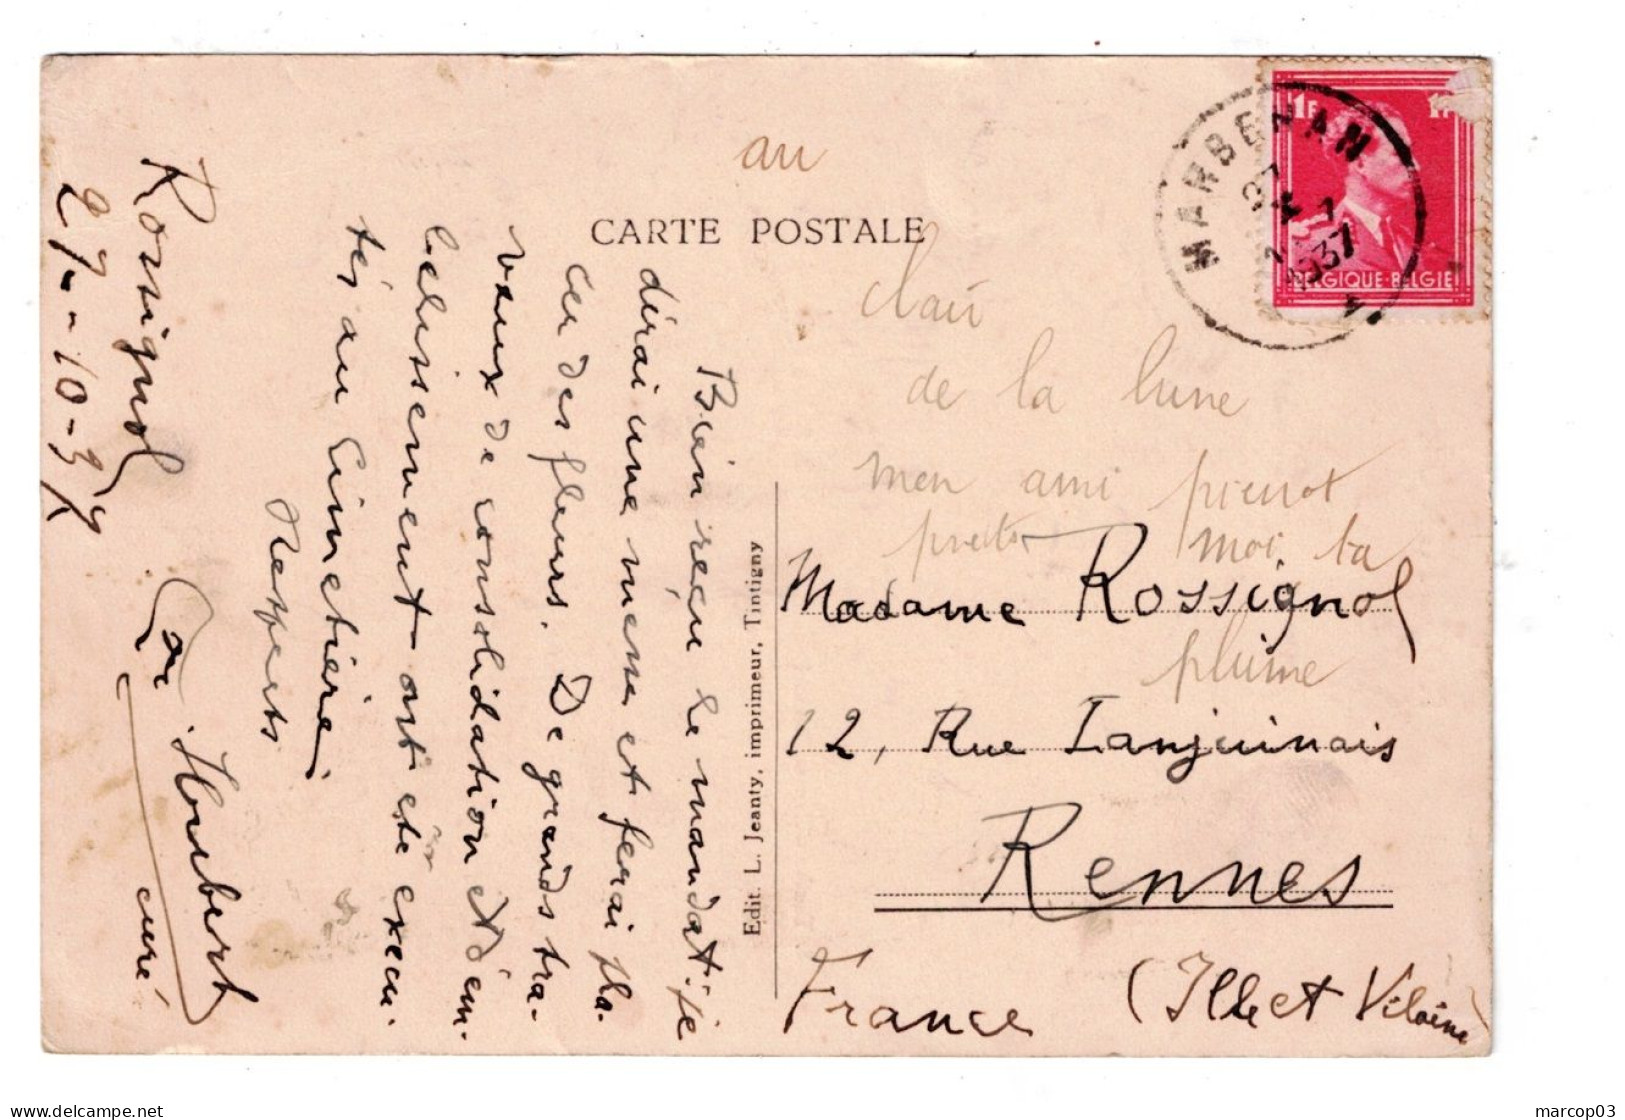 Rossignol
27-10-37
Bien reçu le mandat. je
dirai une messe et ferai pla-
cer des fleurs. De grands tra-
vaux de consolidation et d'em-
bellissement ont été exécu-
tés au Cimetière.
Respects
Hourbert
curé
au
CARTE POSTALE
clair
de la lune
mon ami pierrot
moi ta
plume
Madame Rossignol
12, Rue Lanjuinais
Rennes
France (Ille et Vilaine)
Edit. L. Jeanty, imprimeur, Tintigny
1F
BELGIQUE-BELGIE
MARBEHAN
1937
marcop03
delcampe.net